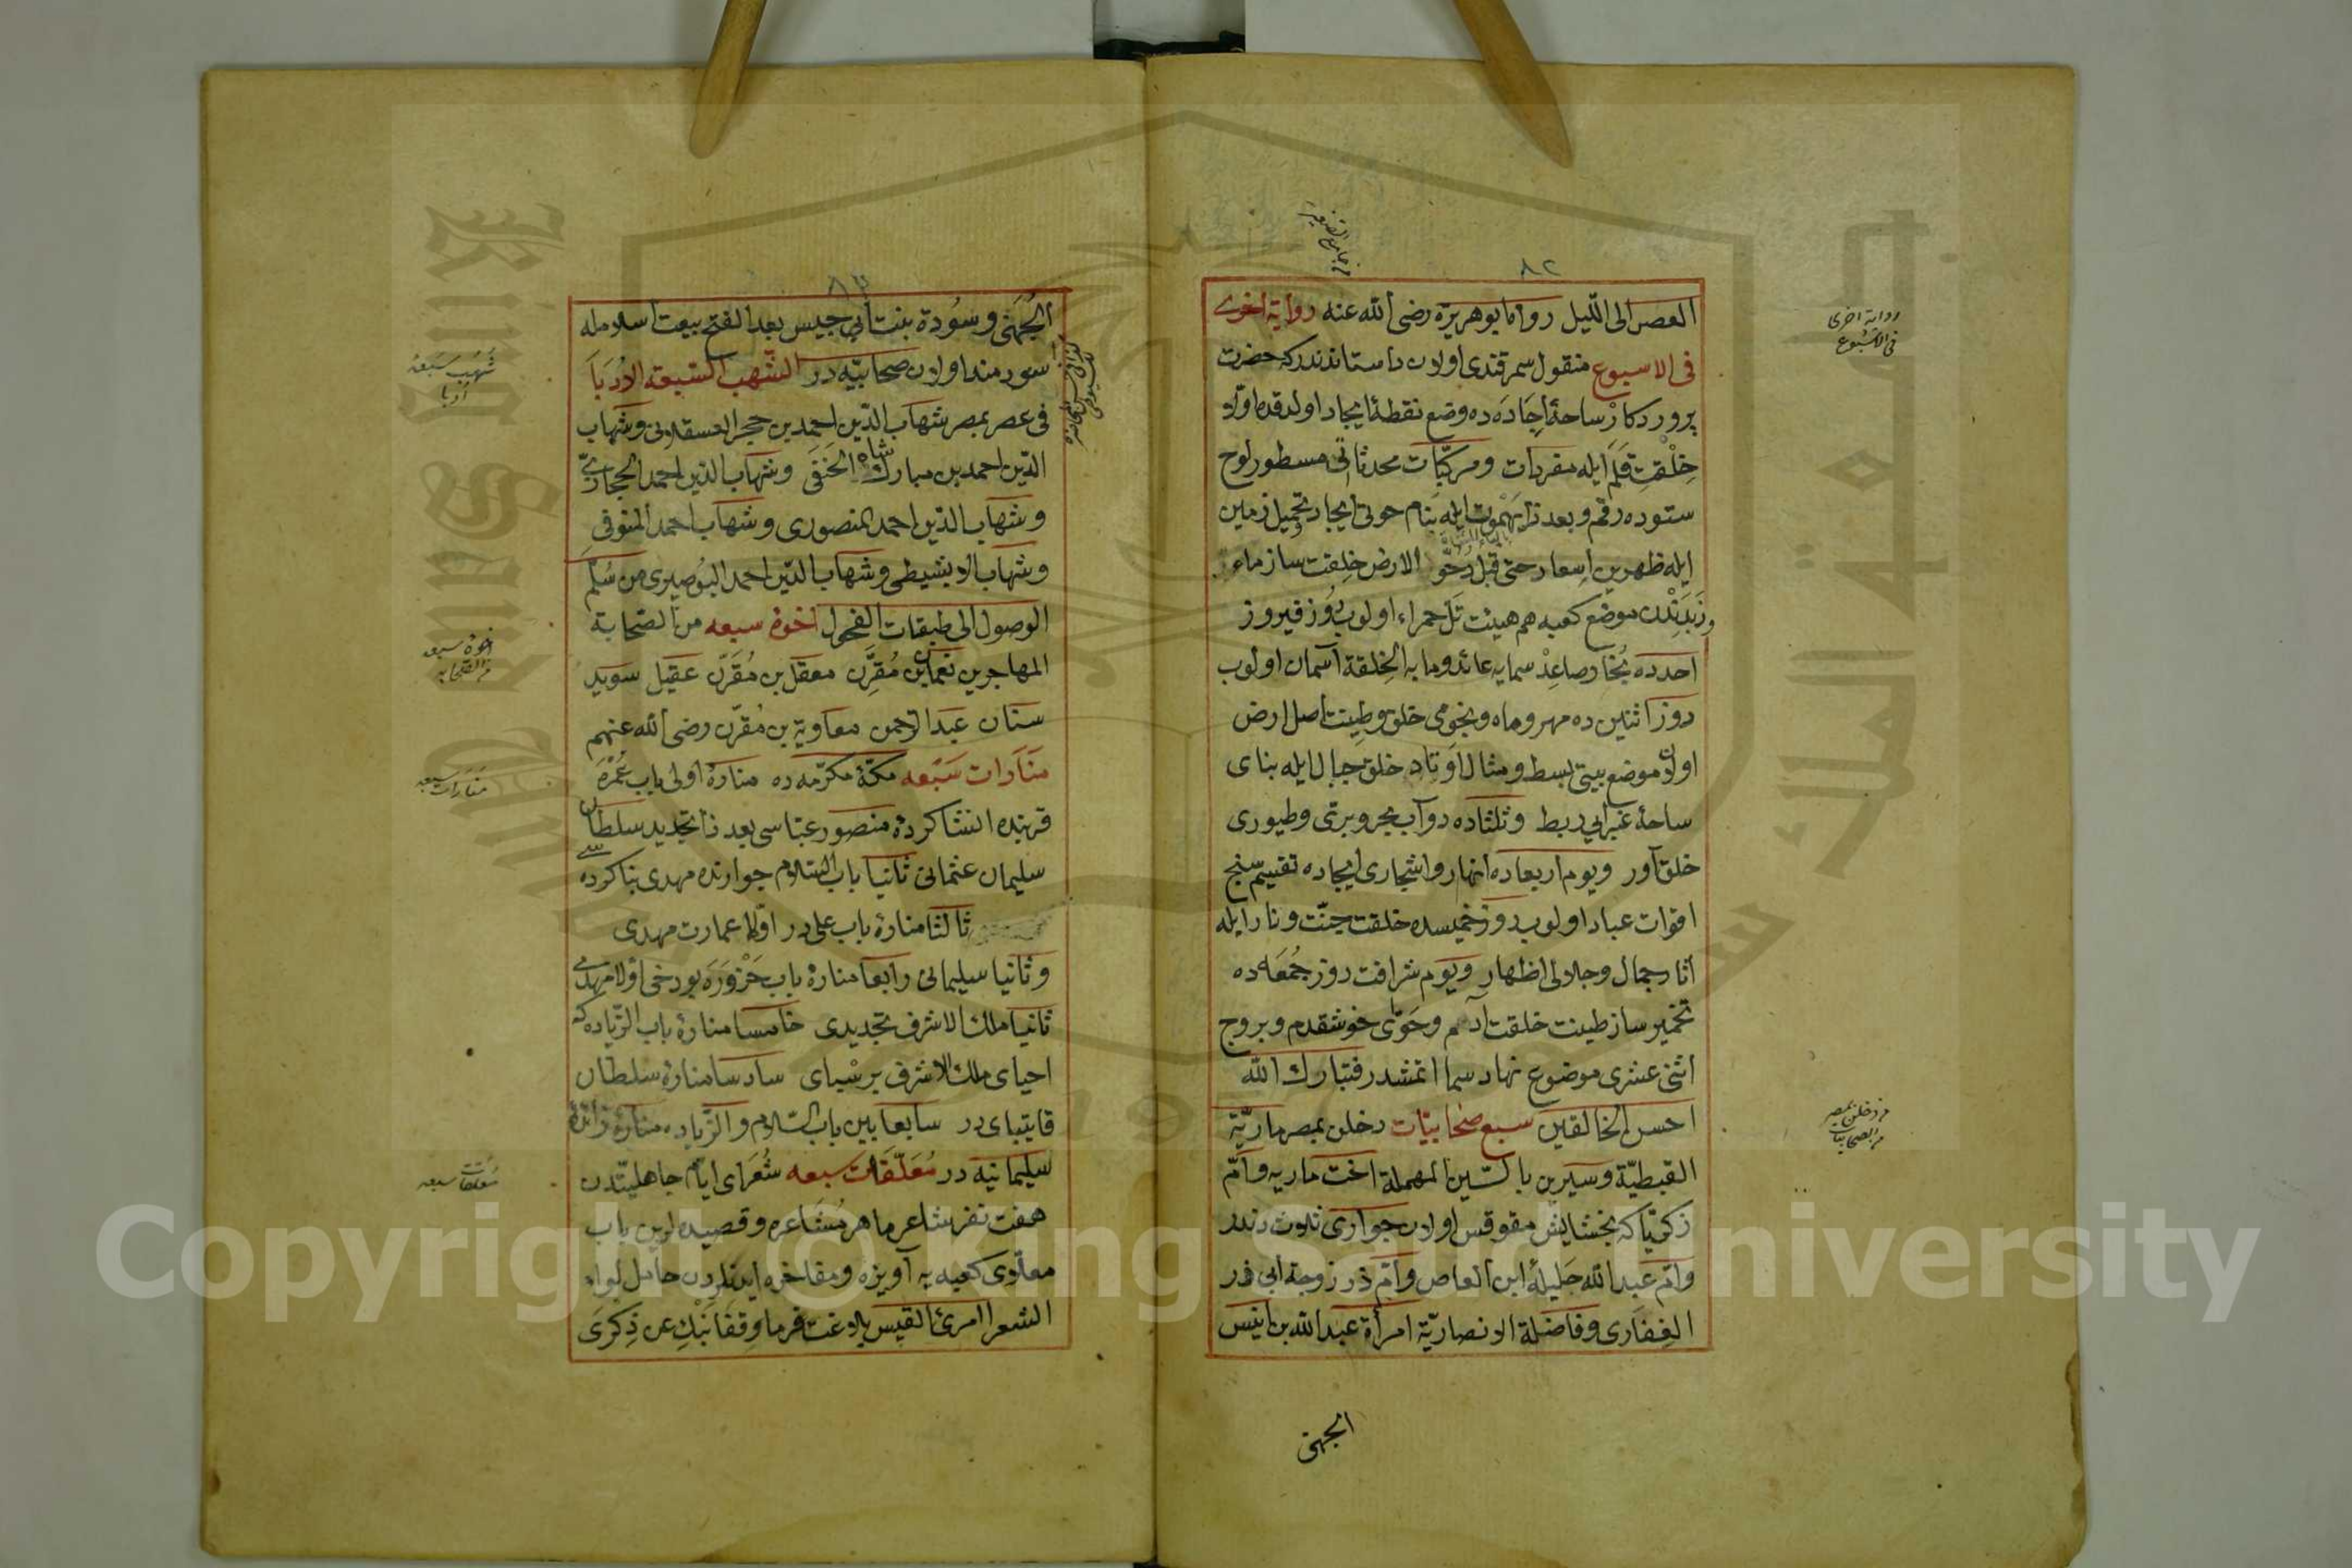 ٨٢
العصر الى الليل رواه ابو هريره رضى الله عنه رواية اخرى
فى الاسبوع منقول سمرقندى اولان داستاندندركه حضرت
پروردكار ساحهٔ اِجَادَه ده وضع نقطهٔ ايجاد اولدقده اولا
خِلْقتِ قَلَم ايله مفردات ومركبّات محدثاتى مسطور لوح
ستوده رقم وبعد ذا بَهْموت ايله بنام حوتى ايجاد وتحميل زمين
ايله ظهرين اِسعاد حتى قبل دُحُوّ الارض خلقت ساز ماء
وزَبَدِندن موضع كعبه هم هيئت تَلّ حمراء اولوب روز فيروز
احدده بُخَار صاعِدْ سمايه عائد ومابه الخِلقة آسمان اولوب
روز اثنين ده مهر وماه ونجومى خلق وطِينت اصل ارض
اولان موضع بيتى بسط ومثال اَوتاد خلق جبال ايله بناى
ساحهٔ غبرايى ربط وثلثاده دوآب بحرو برى وطيورى
خلق آور ويوم اربعاده انهار واشجارى ايجاده تقسيم سنج
اقوات عباد اولوب روز خميسده خلقت جنّت ونار ايله
آثار جمال وجلالى اظهار ويوم شرافت روز جُمُعَه ده
تخمير ساز طينت خلقت آدم وحَوّاى خوشقدم وبروج
اثنى عشرى موضوع نهاد سما اتمشدر فتبارك الله
احسن الخالقين سبع صحابيّات دخلن بمصر ماريّة
القبطيّة وسيرين بالسّين المهملة اخت ماريه وامّ
زكريّا كه بخشايش مقوقس اولان جوارى ثلاث دندر
وامّ عبدالله جَليلهٔ ابن العاص وامّ ذر زوجة ابى ذر
الغِفَارى وفاضلة الانصاريّة امرأة عبدالله بن انيس
الجهنى
رواية اخرى
فى الاسبوع
من دخلن بمصر
من الصحابيات
الجُهَنى وسُودة بنت ابى جيس بعد الفتح بيعت اسلامله
سودمند اولان صحابيّه در الشّهب السّبعه الاُدَبآ
فى عصر بمصر شهاب الدّين احمد بن حجر العسقلانى وشهاب
الدّين احمد بن مبارك شاه الحَنَفى وشهاب الدّين احمد الحجازىّ
وشهاب الدّين احمد المنصورى وشهاب احمد المنوفى
وشهاب الابشيطى وشهاب الدّين احمد البُوصيرى من سُلّم
الوصول الى طبقات الفحول اخوهٔ سبعه من الصّحابة
المهاجرين نعمان بن مُقرّن معقل بن مُقَرّن عقيل سويد
سنان عبد الرحمن معاوية بن مُقرّن رضى الله عنهم
منَارَات سَبْعه مكّهٔ مكرّمه ده منارهٔ اولى باب عُمْرَه
قربنده انشا كردهٔ منصور عبّاسى بعد ذا تجديد سلطان
سليمان عثمانى ثانيا باب السّلام جوارنده مهدى بنا كرده سى
ثالثا منارهٔ باب على در اوّلا عمارت مهدى
وثانيا سليمانى رابعا منارهٔ باب حَزْوَرَه بو دخى اوّلا مهدى
ثانيا ملك الاشرف تجديدى خامسا منارهٔ باب الزّياده كه
احياى ملك الاشرف برسْباى سادسا منارهٔ سلطان
قايتباى در سابعا بين باب السّلام والزّياده منارهٔ زائدهٔ
سليمانيه در مُعَلّقات سبعه شُعَراى ايّام جاهليّتدن
هفت نفر شاعر ماهر مُشَاعره وقصيده لرين باب
معلّاى كعبه يه آويزه ومفاخره ايدنلردن حامل لواء
الشعرا امرئ القيس بلاغت فرما وِقِفَا نَبْكِ عن ذِكرَى
شُهُب سَبعهٔ
اُدَبا
اخوهٔ سبعه
من الصّحابه
منَارَات سبعه
مُعلقات سبعه
Copyright © King Saud University
King Saud University
جامعة الملك سعود